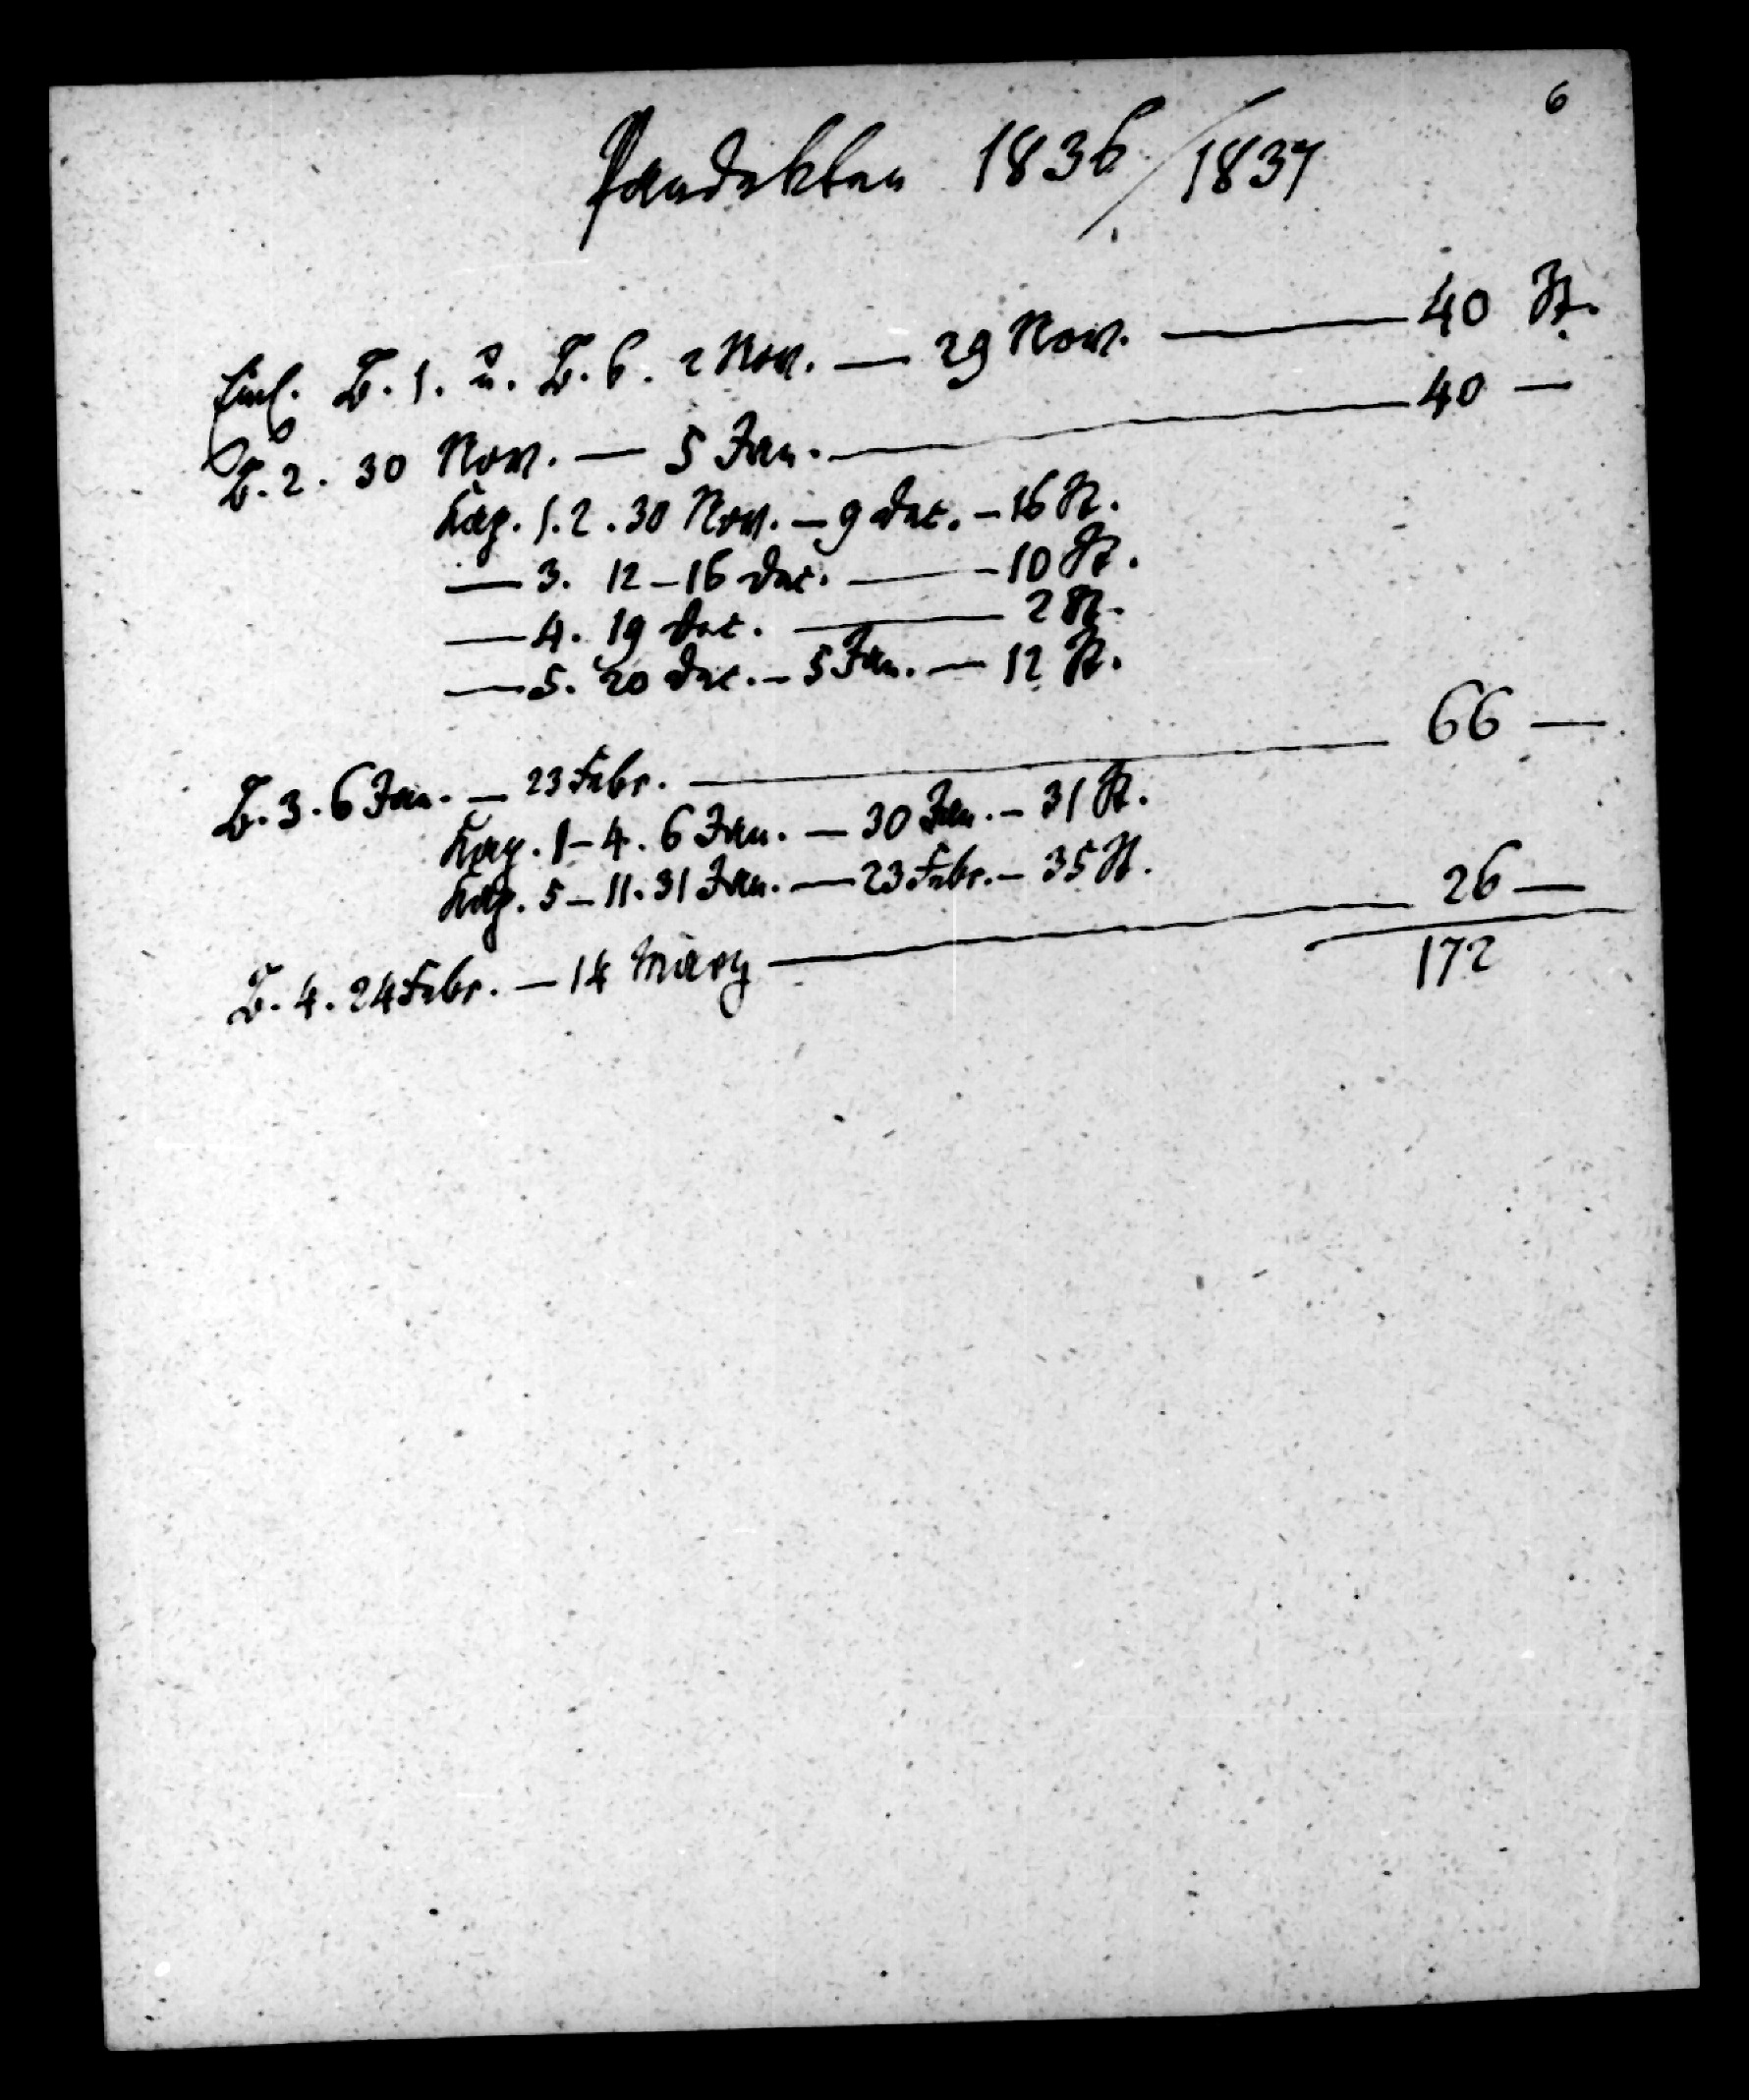 6
Pandekten 1836/1837
Einl. B. 1. u. B. 6. 2 Nov. — 29 Nov. — 40 St.
B. 2. 30 Nov. — 5 Jan. — 40 —
Kap. 1. 2. 30 Nov. — 9 Dec. — 16 St.
— 3. 12 — 16 Dec. — 10 St.
— 4. 19 Dec. — 2 St.
— 5. 20 Dec. — 5 Jan. — 12 St.
B. 3. 6 Jan. — 23 Febr. — 66 —
Kap. 1 — 4. 6 Jan. — 30 Jan. — 31 St.
Kap. 5 — 11. 31 Jan. — 23 Febr. — 35 St.
B. 4. 24 Febr. — 14 März — 26 —
172